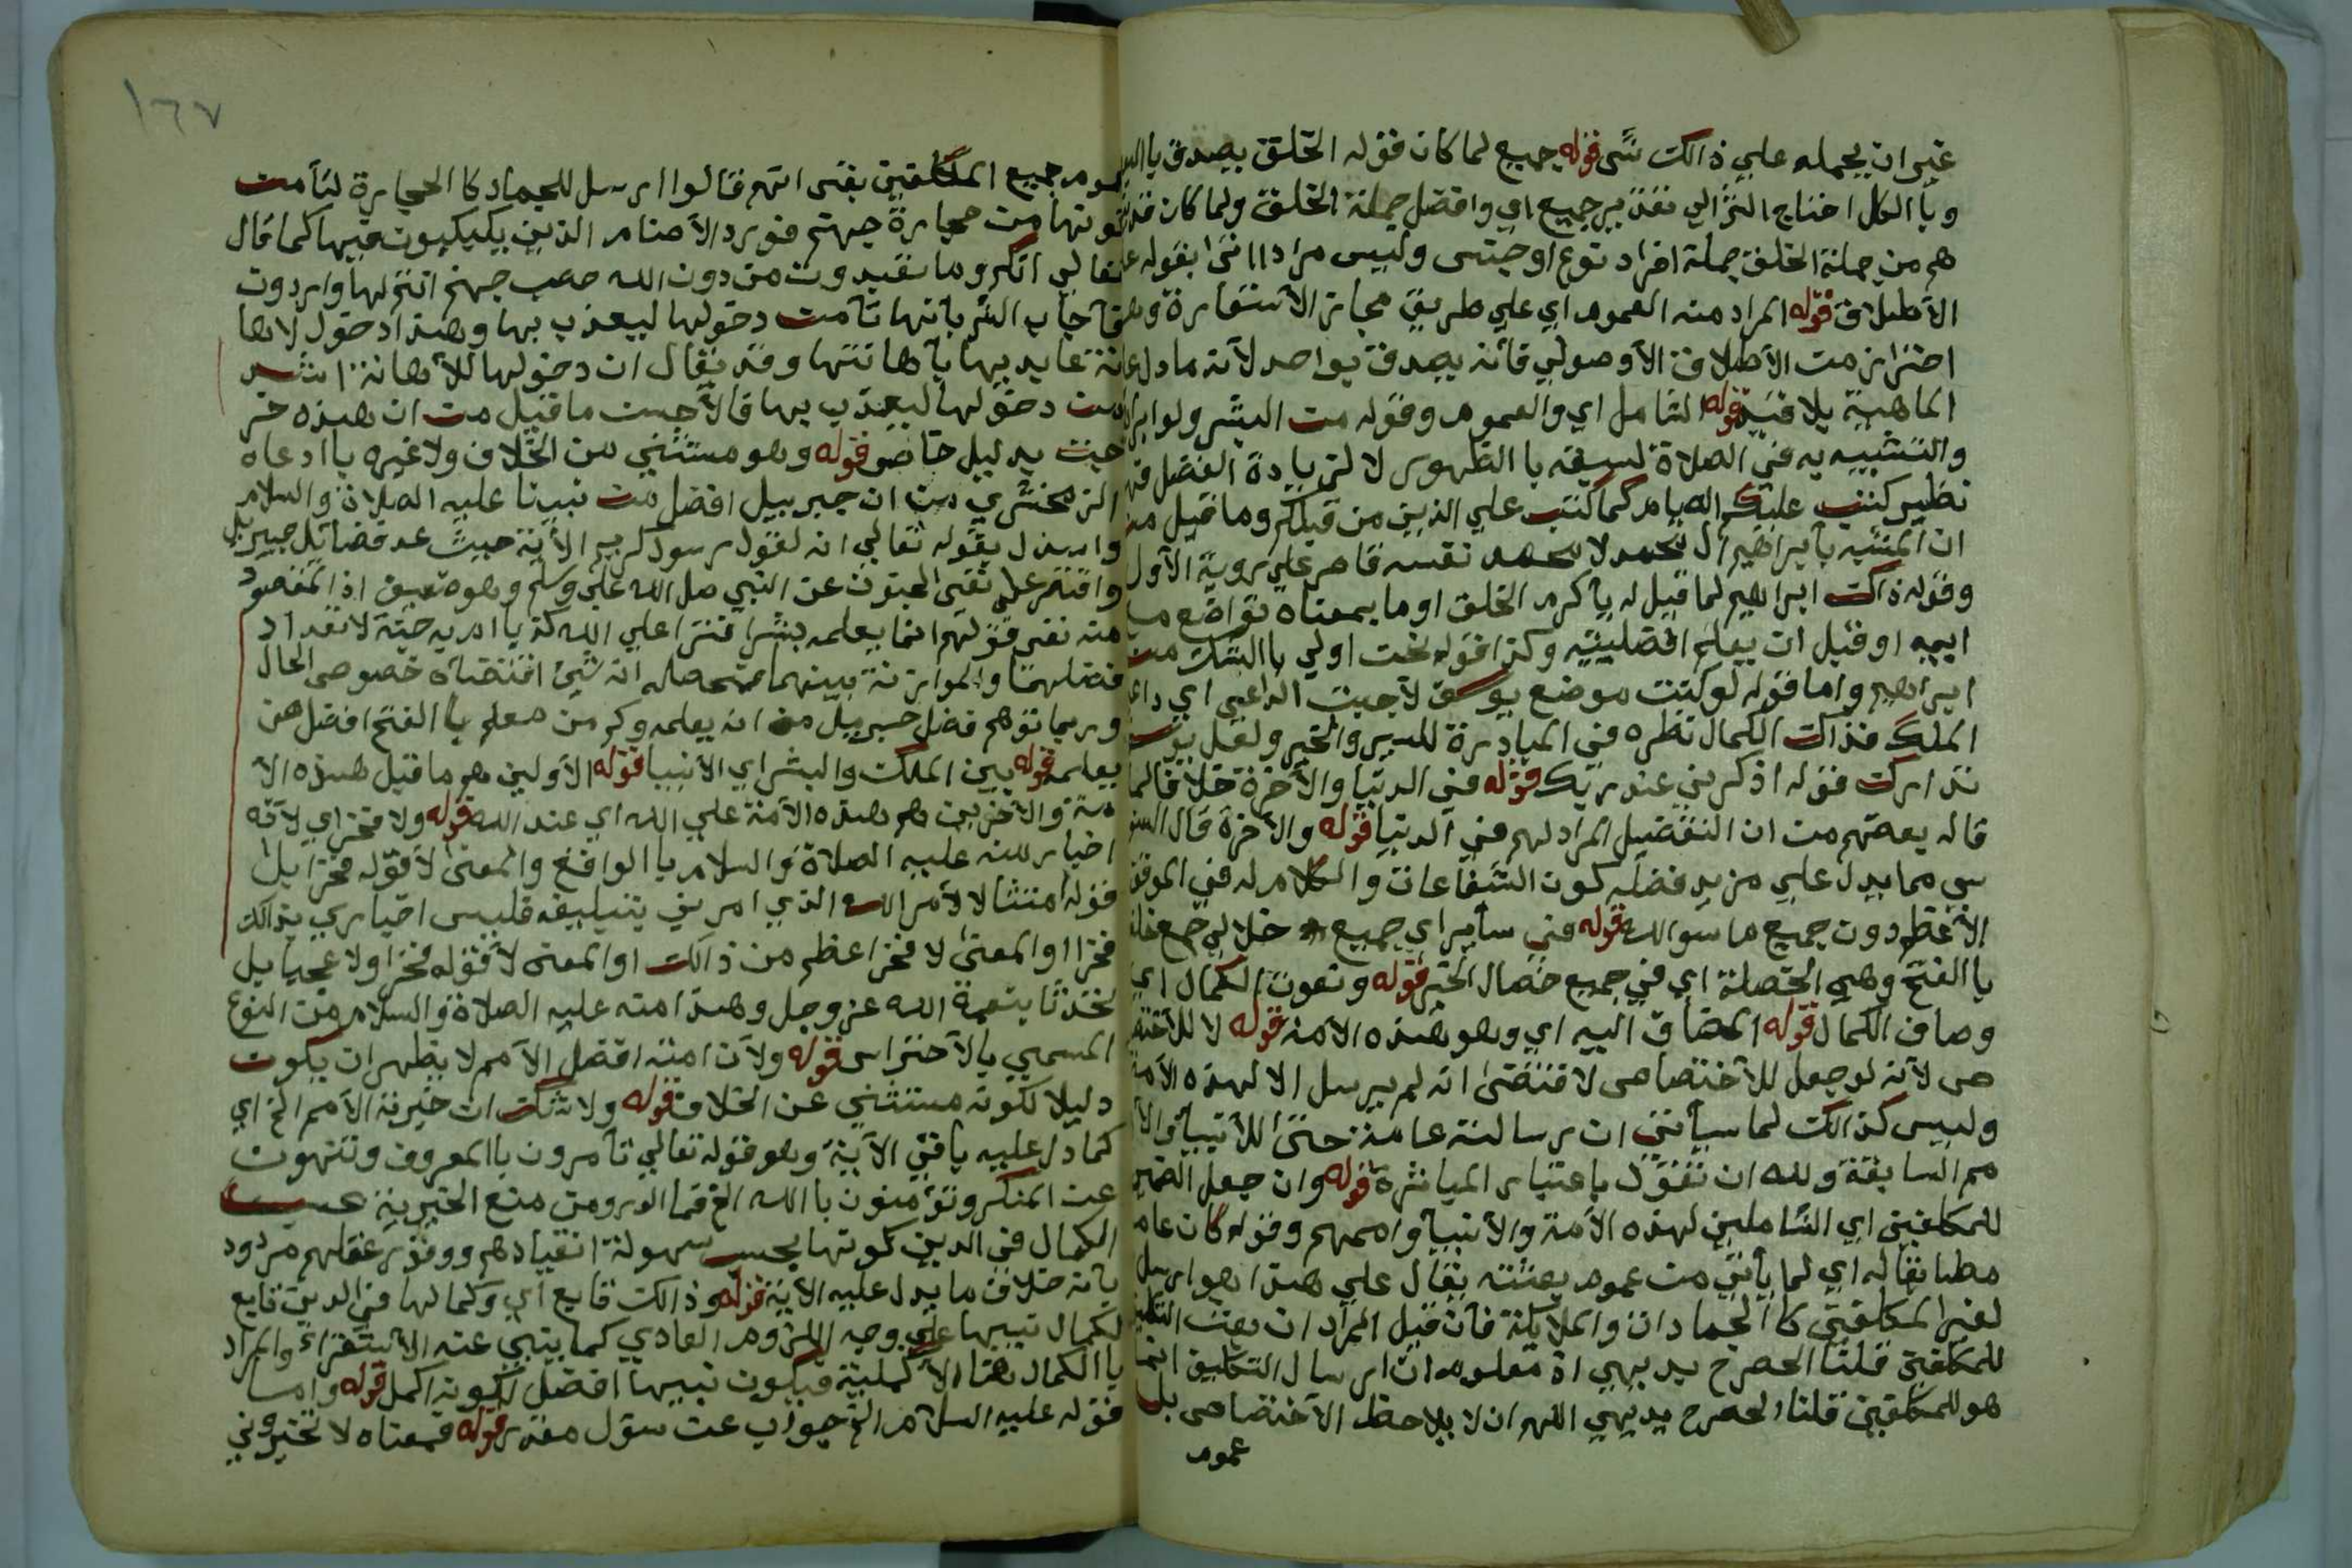 غير ان يحمله علي ذالك شئ قوله جميع لما كان قوله الخلق يصدق بالبعض
وبالكل احتاج الشر الي تقدير جميع اي وافضل جملة الخلق ولما كان
هم من جملة الخلق جملة افراد نوع او جنس وليس مرادا اتى بقوله
الاطلاق قوله المراد منه العموم اي علي طريق مجاز الاستعارة
احتراز من الاطلاق الاوصولي فانه يصدق بواحد لانه ما دل
الماهية بلا قيد قوله الشامل اي والعموم وقوله من البشر
والتشبيه به في الصلاة لسبقه با الظهور لا لزيادة الفضل
نظير كتب عليكم الصيام كما كتب علي الذين من قبلكم وما قيل من
ان المشبه بابراهيم آل محمد لا محمد نفسه قاصر علي روية الاول
وقوله ذاك ابراهيم لما قيل له يا كرم الخلق او ما بمعناه تواضع
ابيه او قبل ان يعلم افضليته وكذا قوله نحن اولي با الشك من
ابراهيم واما قوله لو كنت موضع يوسف لاجبت الداعي اي داعي
الملك فذاك الكمال نظره في المبادرة للسير والخير ولعل يوسف
تدارك قوله اذكرني عند ربك قوله في الدنيا والاخرة خلافا لما
قاله بعضهم من ان التفضيل المراد لهم في الدنيا قوله والاخرة قال
سي مما يدل علي مزيد فضله كون الشفاعات والكلام له في الموقف
الاعظم دون جميع ما سوا الله قوله في ساير اي جميع خلال جمع خلة
با الفتح وهي الخصلة اي في جميع خصال الخير قوله ونعوت الكمال اي
وصاف الكمال قوله المضاف اليه اي وهو هذه الامة قوله لا للاختصا
ص لانه لو جعل للاختصاص لاقتضى انه لم يرسل الا لهذه الامة
وليس كذالك لما سياتي ان رسالته عامة حتى للانبيا
مم السابقة ولله ان تقول باعتبار المباشرة قوله وان جعل الضمير
للمكلفين اي الشاملين لهذه الامة والانبيا واممهم وقوله كان عام
مطابقا له اي لما ياتي من عموم بعثته يقال علي هذا هو ارسل
لغير المكلفين كا الجمادات والملائكة فان قيل المراد ان بعث
للمكلفين قلنا الحصر ح بديهي اذ معلوم ان ارسال التكليف انما
هو للمكلفين قلنا الحصر ح بديهي اللهم ان لا يلاحظ الاختصاص بل
عموم
١٦٧
عموم جميع المكلفين بقى انهم قالوا ارسل للجماد كا الحجارة لتامن
كونها من حجارة جهنم فورد الاصنام الذين يكبكبون فيها كما قال
تعالي انكم وما تعبدون من دون الله حصب جهنم انتم لها واردون
فاجاب الشر بانها تامن دخولها ليعذب بها وهذا دخول لاها
نة عابديها باهانتها وقد يقال ان دخولها للاهانة اشد
من دخولها ليعذب بها فالاحسن ما قيل من ان هذه خر
جت بدليل خاص قوله وهو مستثني من الخلاف ولا غيره با ادعاه
الزمخشري من ان جبريل افضل من نبينا عليه الصلاة والسلام
واستدل بقوله تعالي انه لقول رسول كريم الاية حيث عد فضائل جبريل
واقتصر علي نفي الجنون عن النبي صل الله علي وسلم وهو ضعيف اذ المقصود
منه نفي قولهم انما يعلمه بشر افترا علي الله كذبا ام به جنة لا تعداد
فضلهما والموازنة بينهما فتحصله انه شئ اقتضاه خصوص الحال
وربما توهم فضل جبريل من انه يعلمه وكم من معلم با الفتح افضل من
يعلمه قوله بين الملك والبشر اي الانبيا قوله الاولين هم ما قبل هذه الا
مة والاخرين هم هذه الامة علي الله اي عند الله قوله ولا فخر اي لانه
اخبار منه عليه الصلاة والسلام با الواقع والمعنى لا قوله فخرا بل
قوله امتثالا لامر الله الذي امرني بتبليغه فليس اخباري بذالك
فخرا او المعنى لا فخر اعظم من ذالك او المعنى لا قوله فخرا ولا عجبا بل
تحدثا بنعمة الله عز وجل وهذا منه عليه الصلاة والسلام من النوع
المسمي بالاحتراس قوله ولان امته افضل الامم لا يظهر ان يكون
دليلا لكونه مستثني عن الخلاف قوله ولا شك ان خيرية الامم الخ اي
كما دل عليه باقي الاية وهو قوله تعالي تامرون با المعروف وتنهون
عن المنكر وتؤمنون با الله الخ فما الورومن منع الخيرية بحسب
الكمال في الدين كونها بحسب سهولة انقيادهم ووفور عقلهم مردود
بانه خلاف ما يدل عليه الاية قوله وذالك تابع اي وكمالها في الدين تابع
لكمال نبيها علي وجه اللزوم العادي كما ينبي عنه الاستقراء والمراد
با الكمال هنا الاكملية فيكون نبيها افضل لكونه اكمل قوله واما
قوله عليه السلام الخ جواب عن سؤل مقدر قوله فمعناه لا تخيروني